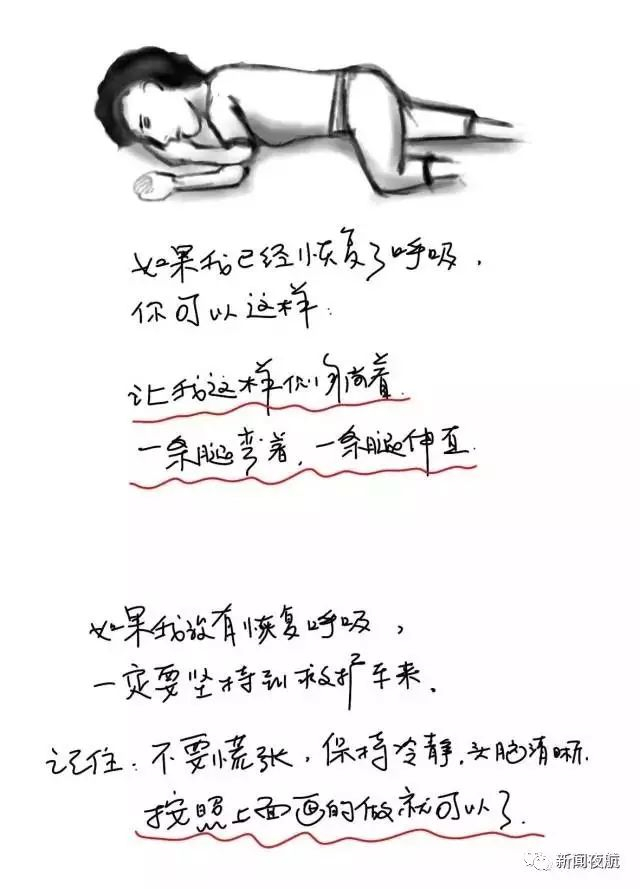 如果我已经恢复了呼吸，
你可以这样：
让我这样侧躺着.
一条腿弯着，一条腿伸直.
如果我没有恢复呼吸，
一定要坚持到救护车来.
记住：不要慌张，保持冷静.头脑清晰.
按照上面画的做就可以了.
新闻夜航